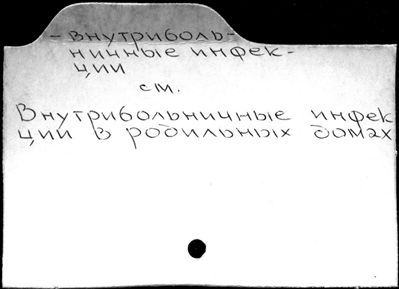 - внутриболь-
ничные инфек-
ции
см.
Внутрибольничные инфек
ции в родильных домах